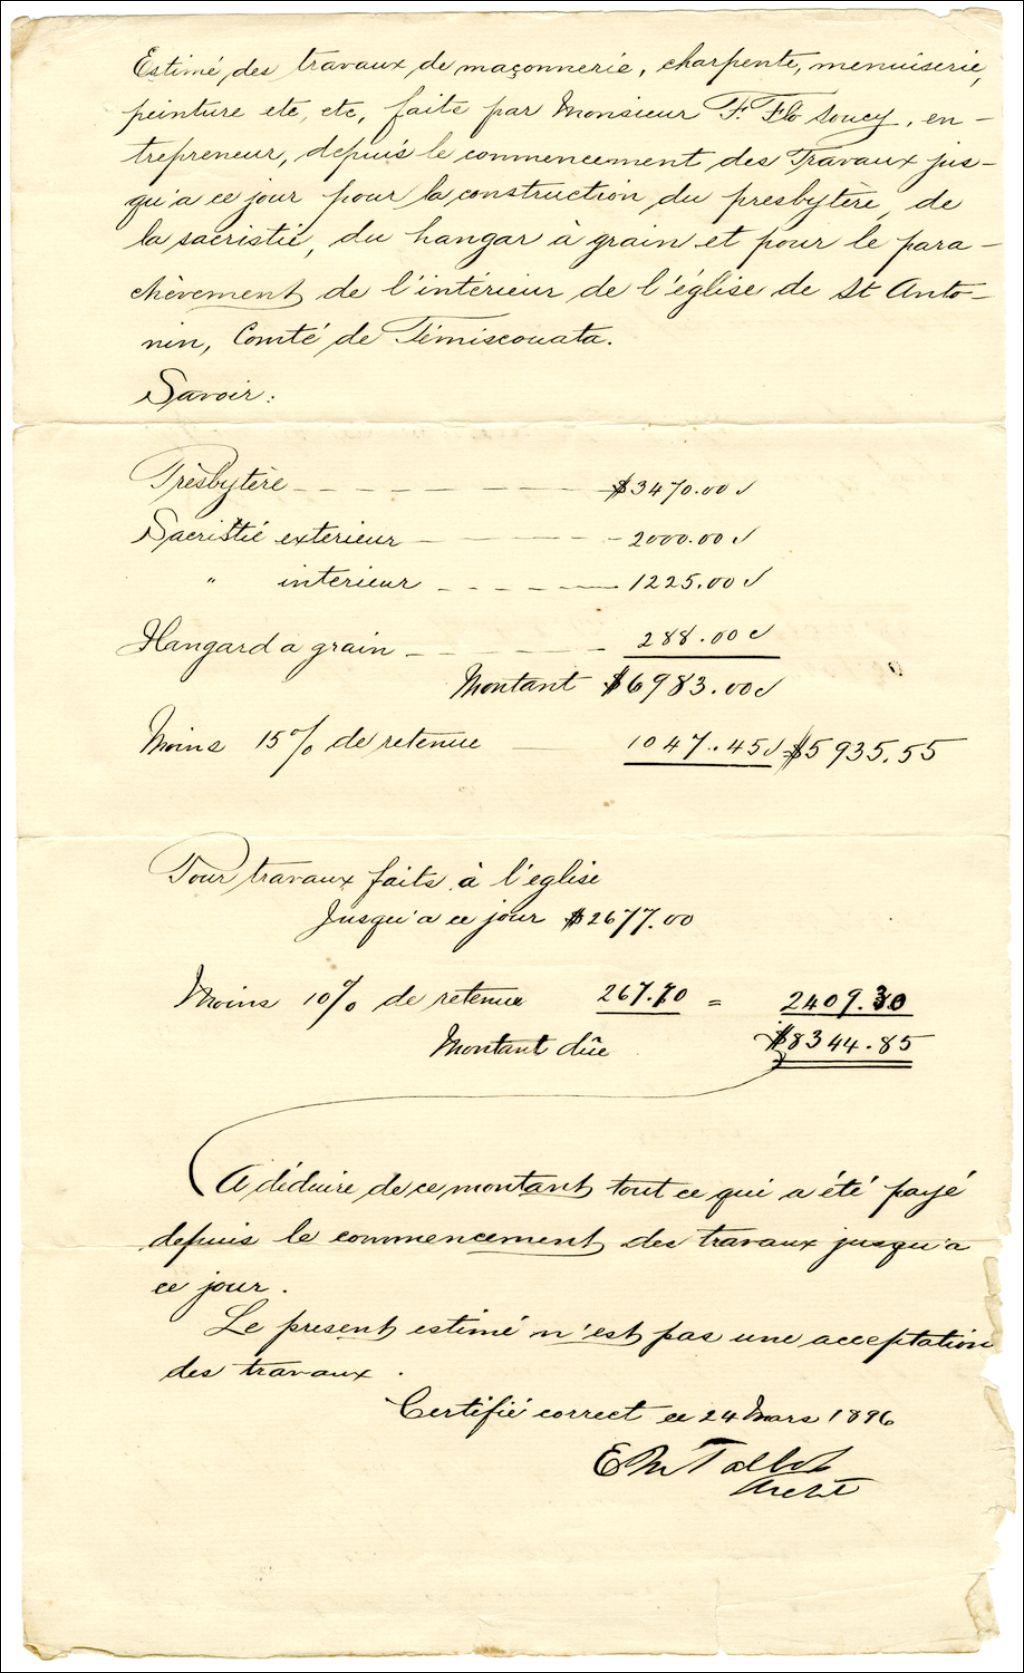 Estimé des travaux de maçonnerie, charpente, menuiserie,
peinture etc, etc, faits par Monsieur F. Flo Soucy, en-
trepreneur, depuis le commencement des Travaux jus-
qu'a ce jour pour la construction du presbytère, de
la sacristie, du hangar à grain et pour le para-
chèvement de l'intérieur de l'église de St Anto-
nin, Comté de Témiscouata.
Savoir:
Presbytère $3470.00
Sacristie exterieur 2000.00
" intérieur 1225.00
Hangard a grain 288.00
Montant $6983.00
Moins 15% de retenue 1047.45 = $5935.55
Pour travaux faits à l'eglise
Jusqu'a ce jour $2677.00
Moins 10% de retenue 267.70 = 2409.30
Montant dûe $8344.85
A déduire de ce montant tout ce qui a été payé
depuis le commencement des travaux jusqu'a
ce jour.
Le present estimé n'est pas une acceptation
des travaux.
Certifié correct ce 24 Mars 1896
Archt